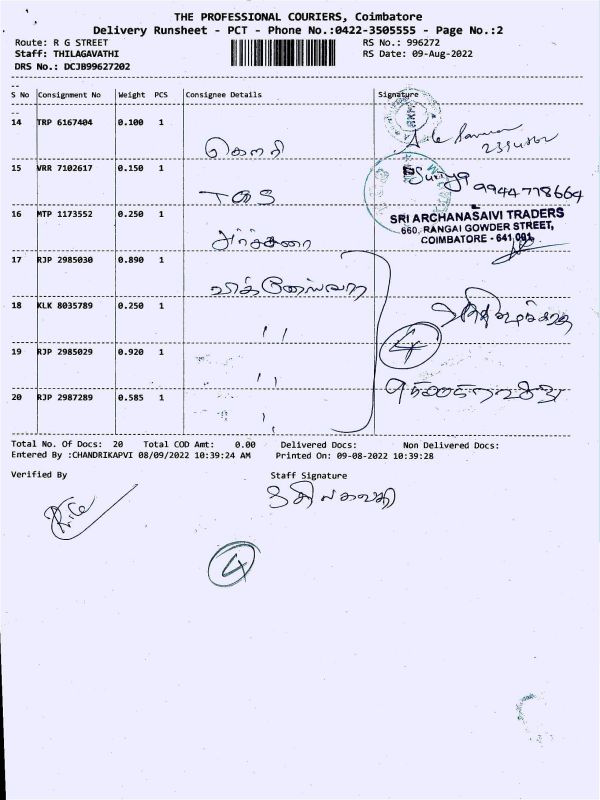 THE PROFESSIONAL COURIERS, Coimbatore
Delivery Runsheet - PCT - Phone No.:0422-3505555 - Page No.:2
Route: R G STREET
RS No.: 996272
Staff: THILAGAVATHI
RS Date: 09-Aug-2022
DRS No.: DCJB99627202
S No Consignment No Weight PCS Consignee Details Signature
14 TRP 6167404 0.100 1
கௌரி
15 VRR 7102617 0.150 1
Suriya 9944778664
TOS
SRI ARCHANASAIVI TRADERS
660, RANGAI GOWDER STREET,
COIMBATORE - 641 001.
16 MTP 1173552 0.250 1
அர்ச்சனா
17 RJP 2985030 0.890 1
விக்னேஸ்வரா
18 KLK 8035789 0.250 1
"
4
19 RJP 2985029 0.920 1
"
20 RJP 2987289 0.585 1
"
Total No. Of Docs: 20 Total COD Amt: 0.00 Delivered Docs: Non Delivered Docs:
Entered By :CHANDRIKAPVI 08/09/2022 10:39:24 AM Printed On: 09-08-2022 10:39:28
Verified By Staff Signature
திலகவதி
4